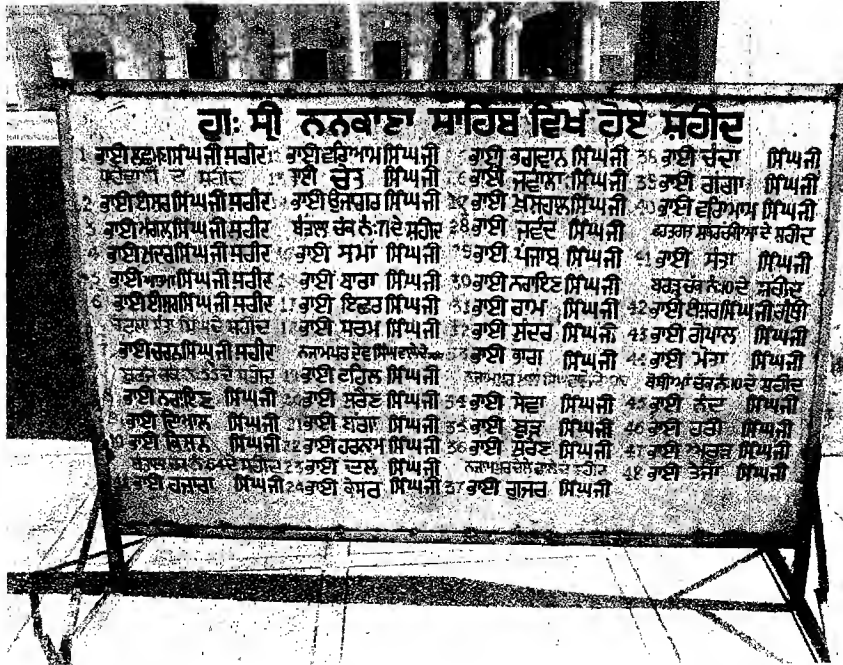 ਗੁ: ਸ੍ਰੀ ਨਨਕਾਣਾ ਸਾਹਿਬ ਵਿਖੇ ਹੋਏ ਸ਼ਹੀਦ
1 ਭਾਈ ਲਛਮਣ ਸਿੰਘ ਜੀ ਸ਼ਹੀਦ
ਦੇ ਸ਼ਹੀਦ
2 ਭਾਈ ਈਸ਼ਰ ਸਿੰਘ ਜੀ ਸ਼ਹੀਦ
3 ਭਾਈ ਮੰਗਲ ਸਿੰਘ ਜੀ ਸ਼ਹੀਦ
4 ਭਾਈ ਸੁੰਦਰ ਸਿੰਘ ਜੀ ਸ਼ਹੀਦ
5 ਭਾਈ ਆਤਮਾ ਸਿੰਘ ਜੀ ਸ਼ਹੀਦ
6 ਭਾਈ ਈਸ਼ਰ ਸਿੰਘ ਜੀ ਸ਼ਹੀਦ
ਦੇ ਸ਼ਹੀਦ
ਭਾਈ ਚਰਨ ਸਿੰਘ ਜੀ ਸ਼ਹੀਦ
ਚੱਕ ਨੰ: ਦੇ ਸ਼ਹੀਦ
ਭਾਈ ਨਰਾਇਣ ਸਿੰਘ ਜੀ
ਭਾਈ ਦਿਆਲ ਸਿੰਘ ਜੀ
10 ਭਾਈ ਕਿਸ਼ਨ ਸਿੰਘ ਜੀ
ਚੱਕ ਨੰ: 64 ਦੇ ਸ਼ਹੀਦ
ਭਾਈ ਹਜ਼ਾਰਾ ਸਿੰਘ ਜੀ
ਭਾਈ ਵਰਿਆਮ ਸਿੰਘ ਜੀ
ਭਾਈ ਚੇਤ ਸਿੰਘ ਜੀ
ਭਾਈ ਉਜਾਗਰ ਸਿੰਘ ਜੀ
ਚੱਕ ਨੰ: 71 ਦੇ ਸ਼ਹੀਦ
ਭਾਈ ਸਮਾ ਸਿੰਘ ਜੀ
ਭਾਈ ਬਾਰਾ ਸਿੰਘ ਜੀ
17 ਭਾਈ ਇਛਰ ਸਿੰਘ ਜੀ
ਭਾਈ ਧਰਮ ਸਿੰਘ ਜੀ
ਨਜਾਮਪੁਰ ਦੇਵਾ ਸਿੰਘ ਵਾਲੇ ਦੇ
ਭਾਈ ਟਹਿਲ ਸਿੰਘ ਜੀ
ਭਾਈ ਸੁਰੈਣ ਸਿੰਘ ਜੀ
21 ਭਾਈ ਬੱਗਾ ਸਿੰਘ ਜੀ
22 ਭਾਈ ਹਰਨਾਮ ਸਿੰਘ ਜੀ
23 ਭਾਈ ਦਲ ਸਿੰਘ ਜੀ
24 ਭਾਈ ਕੇਸਰ ਸਿੰਘ ਜੀ
ਭਾਈ ਭਗਵਾਨ ਸਿੰਘ ਜੀ
ਭਾਈ ਜਵਾਲਾ ਸਿੰਘ ਜੀ
ਭਾਈ ਖੁਸ਼ਹਾਲ ਸਿੰਘ ਜੀ
28 ਭਾਈ ਜਵੰਦ ਸਿੰਘ ਜੀ
ਭਾਈ ਪੰਜਾਬ ਸਿੰਘ ਜੀ
30 ਭਾਈ ਨਰਾਇਣ ਸਿੰਘ ਜੀ
31 ਭਾਈ ਰਾਮ ਸਿੰਘ ਜੀ
ਭਾਈ ਸੁੰਦਰ ਸਿੰਘ ਜੀ
ਭਾਈ ਭਾਗ ਸਿੰਘ ਜੀ
34 ਭਾਈ ਸੇਵਾ ਸਿੰਘ ਜੀ
35 ਭਾਈ ਬੂੜ ਸਿੰਘ ਜੀ
36 ਭਾਈ ਸੁਰੈਣ ਸਿੰਘ ਜੀ
ਨਜਾਮਪੁਰ ਚੇਲੇ ਵਾਲੇ ਦੇ ਸ਼ਹੀਦ
37 ਭਾਈ ਗੁਜਰ ਸਿੰਘ ਜੀ
38 ਭਾਈ ਚੰਦਾ ਸਿੰਘ ਜੀ
39 ਭਾਈ ਗੰਗਾ ਸਿੰਘ ਜੀ
40 ਭਾਈ ਵਰਿਆਮ ਸਿੰਘ ਜੀ
ਦੇ ਸ਼ਹੀਦ
41 ਭਾਈ ਸੰਤਾ ਸਿੰਘ ਜੀ
ਚੱਕ ਨੰ: 10 ਦੇ ਸ਼ਹੀਦ
42 ਭਾਈ ਈਸ਼ਰ ਸਿੰਘ ਜੀ
43 ਭਾਈ ਗੋਪਾਲ ਸਿੰਘ ਜੀ
44 ਭਾਈ ਮੋਤਾ ਸਿੰਘ ਜੀ
ਚੱਕ ਨੰ: 10 ਦੇ ਸ਼ਹੀਦ
45 ਭਾਈ ਨੰਦ ਸਿੰਘ ਜੀ
46 ਭਾਈ ਹਰੀ ਸਿੰਘ ਜੀ
47 ਭਾਈ ਅਰੂੜ ਸਿੰਘ ਜੀ
48 ਭਾਈ ਤੇਜਾ ਸਿੰਘ ਜੀ